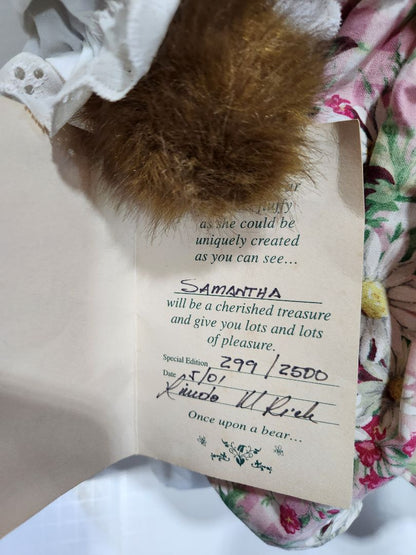 fluffy
as she could be
uniquely created
as you can see...
SAMANTHA
will be a cherished treasure
and give you lots and lots
of pleasure.
Special Edition 299/2500
Date 5/01
Linda M Rich
Once upon a bear...